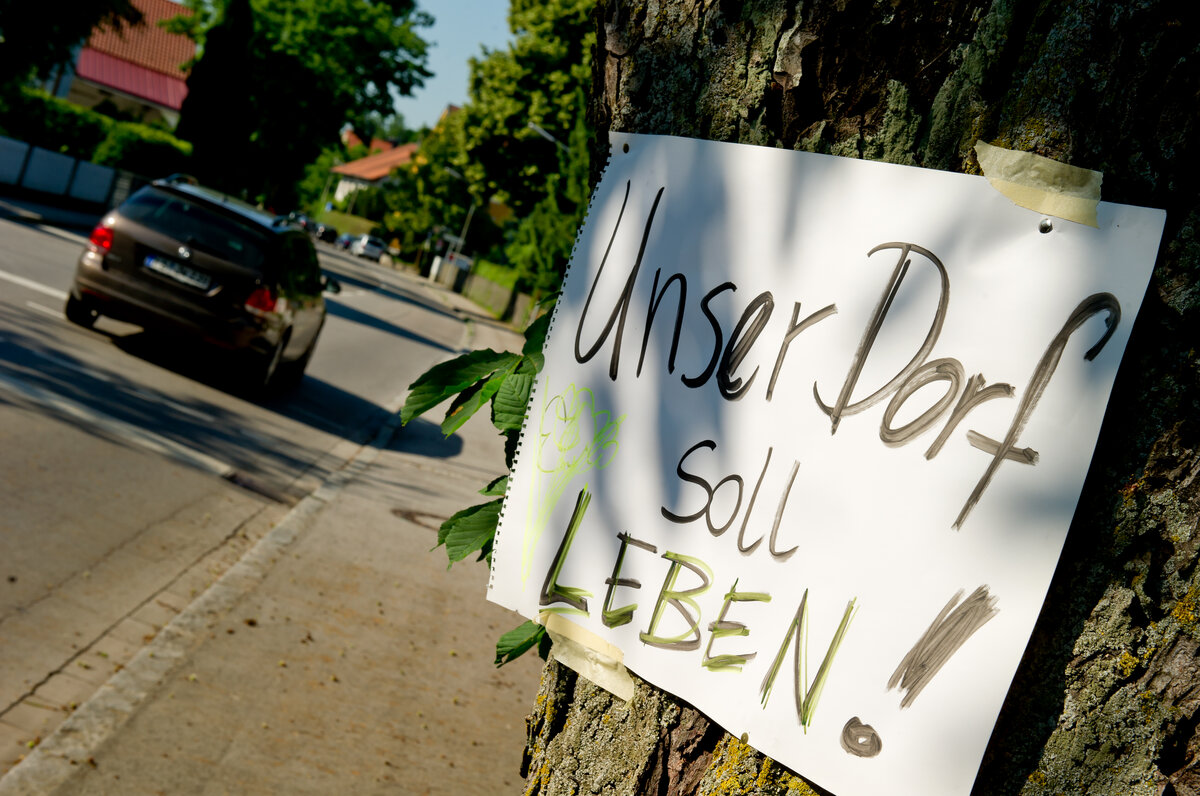 Unser Dorf
soll
LEBEN!